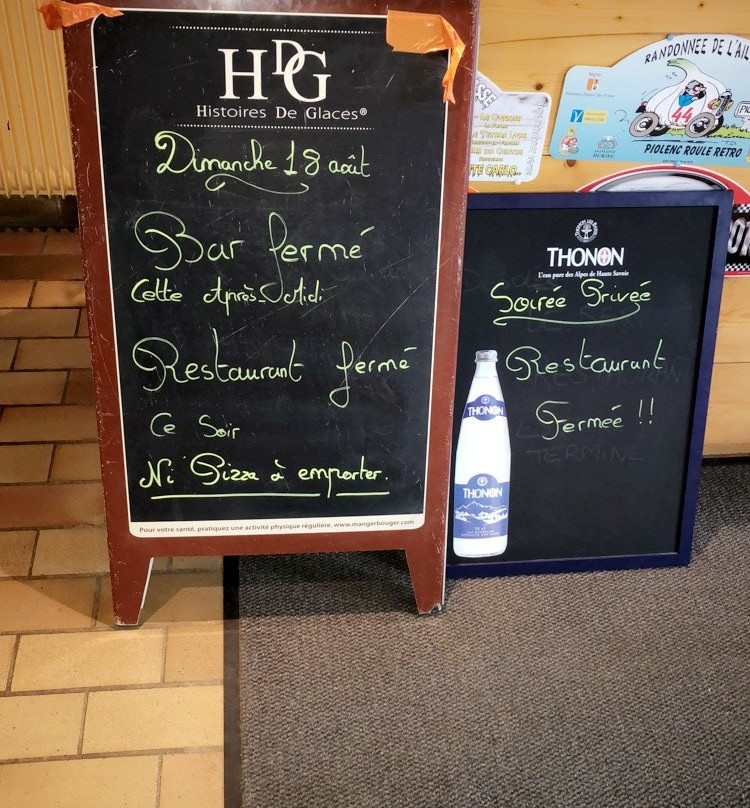 HDG
Histoires De Glaces®
Dimanche 18 août
Bar fermé
Cette Après-Midi
Restaurant fermé
Ce Soir
Ni Pizza à emporter.
Pour votre santé, pratiquez une activité physique régulière. www.mangerbouger.com
THONON
L'eau pure des Alpes de Haute Savoie
Soirée Privée
Restaurant
Fermée !!
TERMINE
THONON
THONON
RANDONNEE DE L'AIL
44
PIOLENC ROULE RETRO